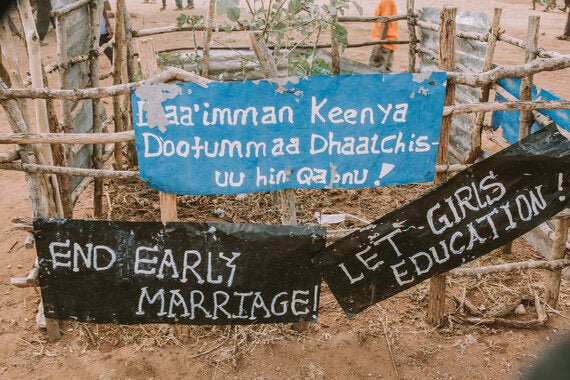 Daa'imman Keenya
Doofummaa Dhaalchis-
uu hin Qabnu!
END EARLY
MARRIAGE!
LET GIRLS
EDUCATION!